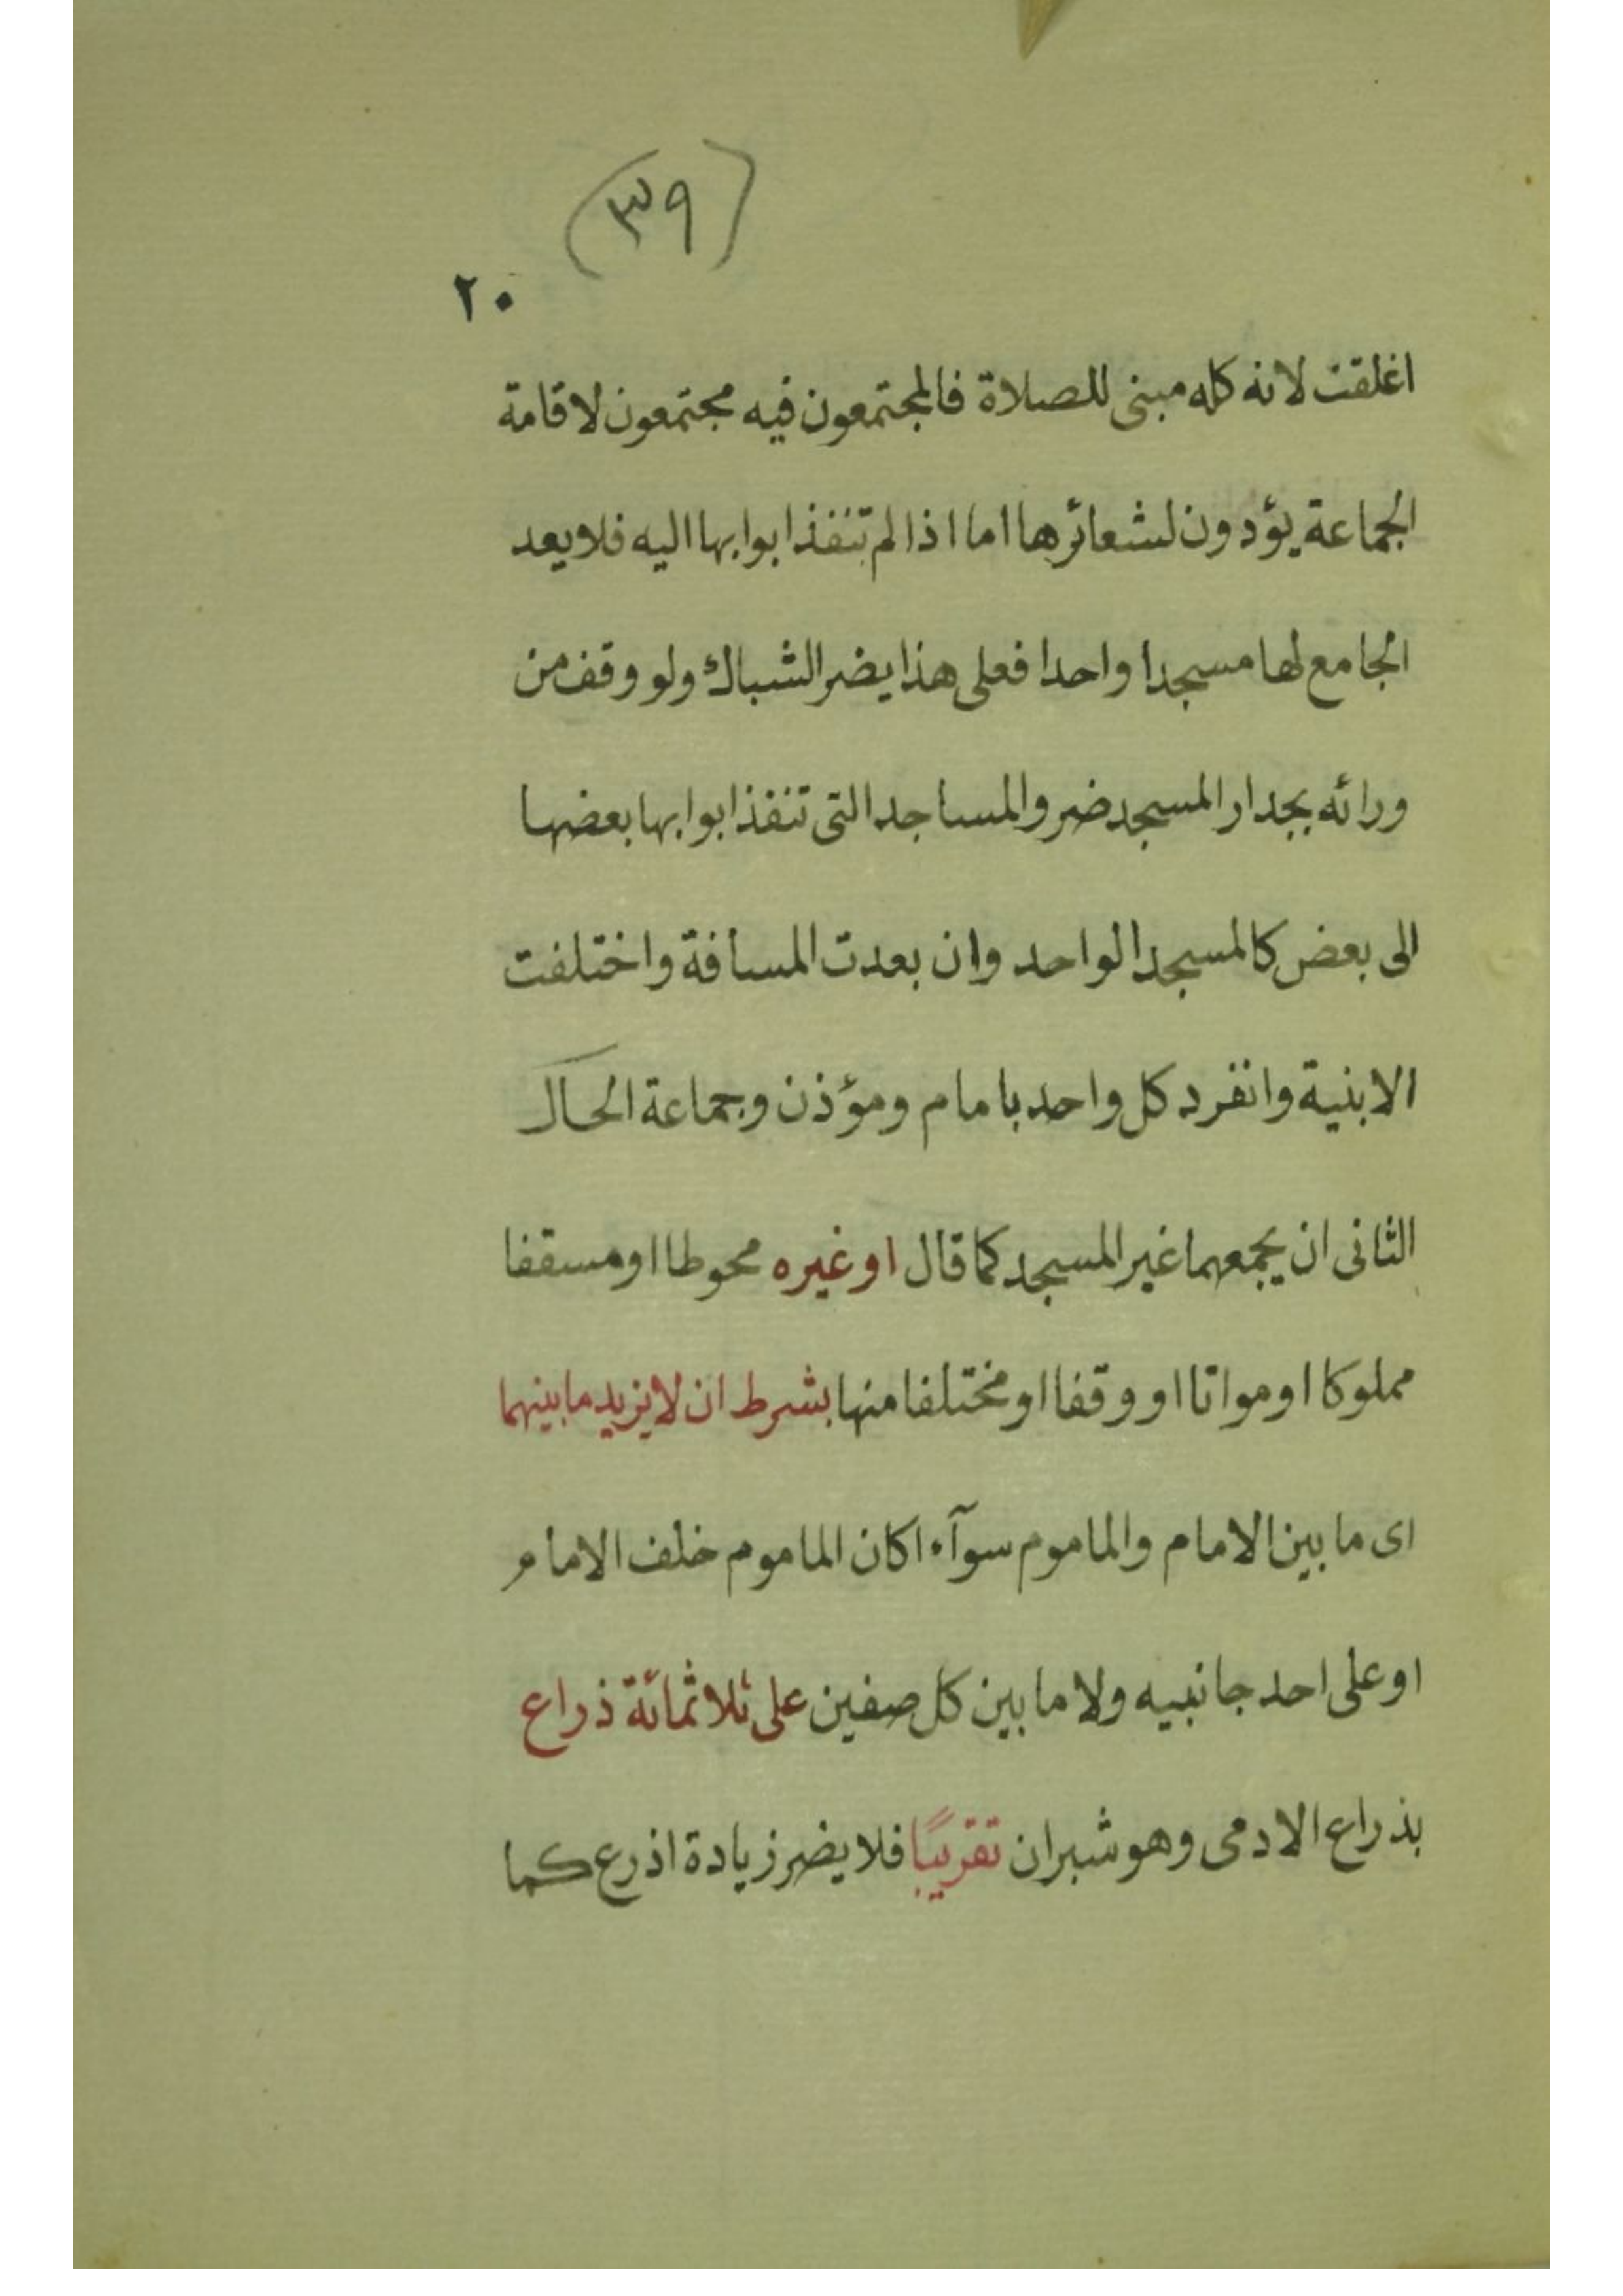 (٣٩)
٢٠
اغلقت لانه كله مبنى للصلاة فالمجتمعون فيه مجتمعون لاقامة
الجماعة يؤدون لشعائرها اما اذا لم تنفذ ابوابها اليه فلا يعد
الجامع لها مسجدا واحدا فعلى هذا يضر الشباك ولو وقف من
ورائه بجدار المسجد ضر والمساجد التى تنفذ ابوابها بعضها
الى بعض كالمسجد الواحد وان بعدت المسافة واختلفت
الابنية وانفرد كل واحد بامام ومؤذن وجماعة الحال
الثانى ان يجمعهما غير المسجد كما قال او غيره محوطا او مسقفا
مملوكا او مواتا او وقفا او مختلفا منها بشرط ان لا يزيد ما بينهما
اى ما بين الامام والماموم سوآء اكان الماموم خلف الامام
او على احد جانبيه ولا ما بين كل صفين على ثلاثمائة ذراع
بذراع الادمى وهو شبران تقريبًا فلا يضر زيادة اذرع كما